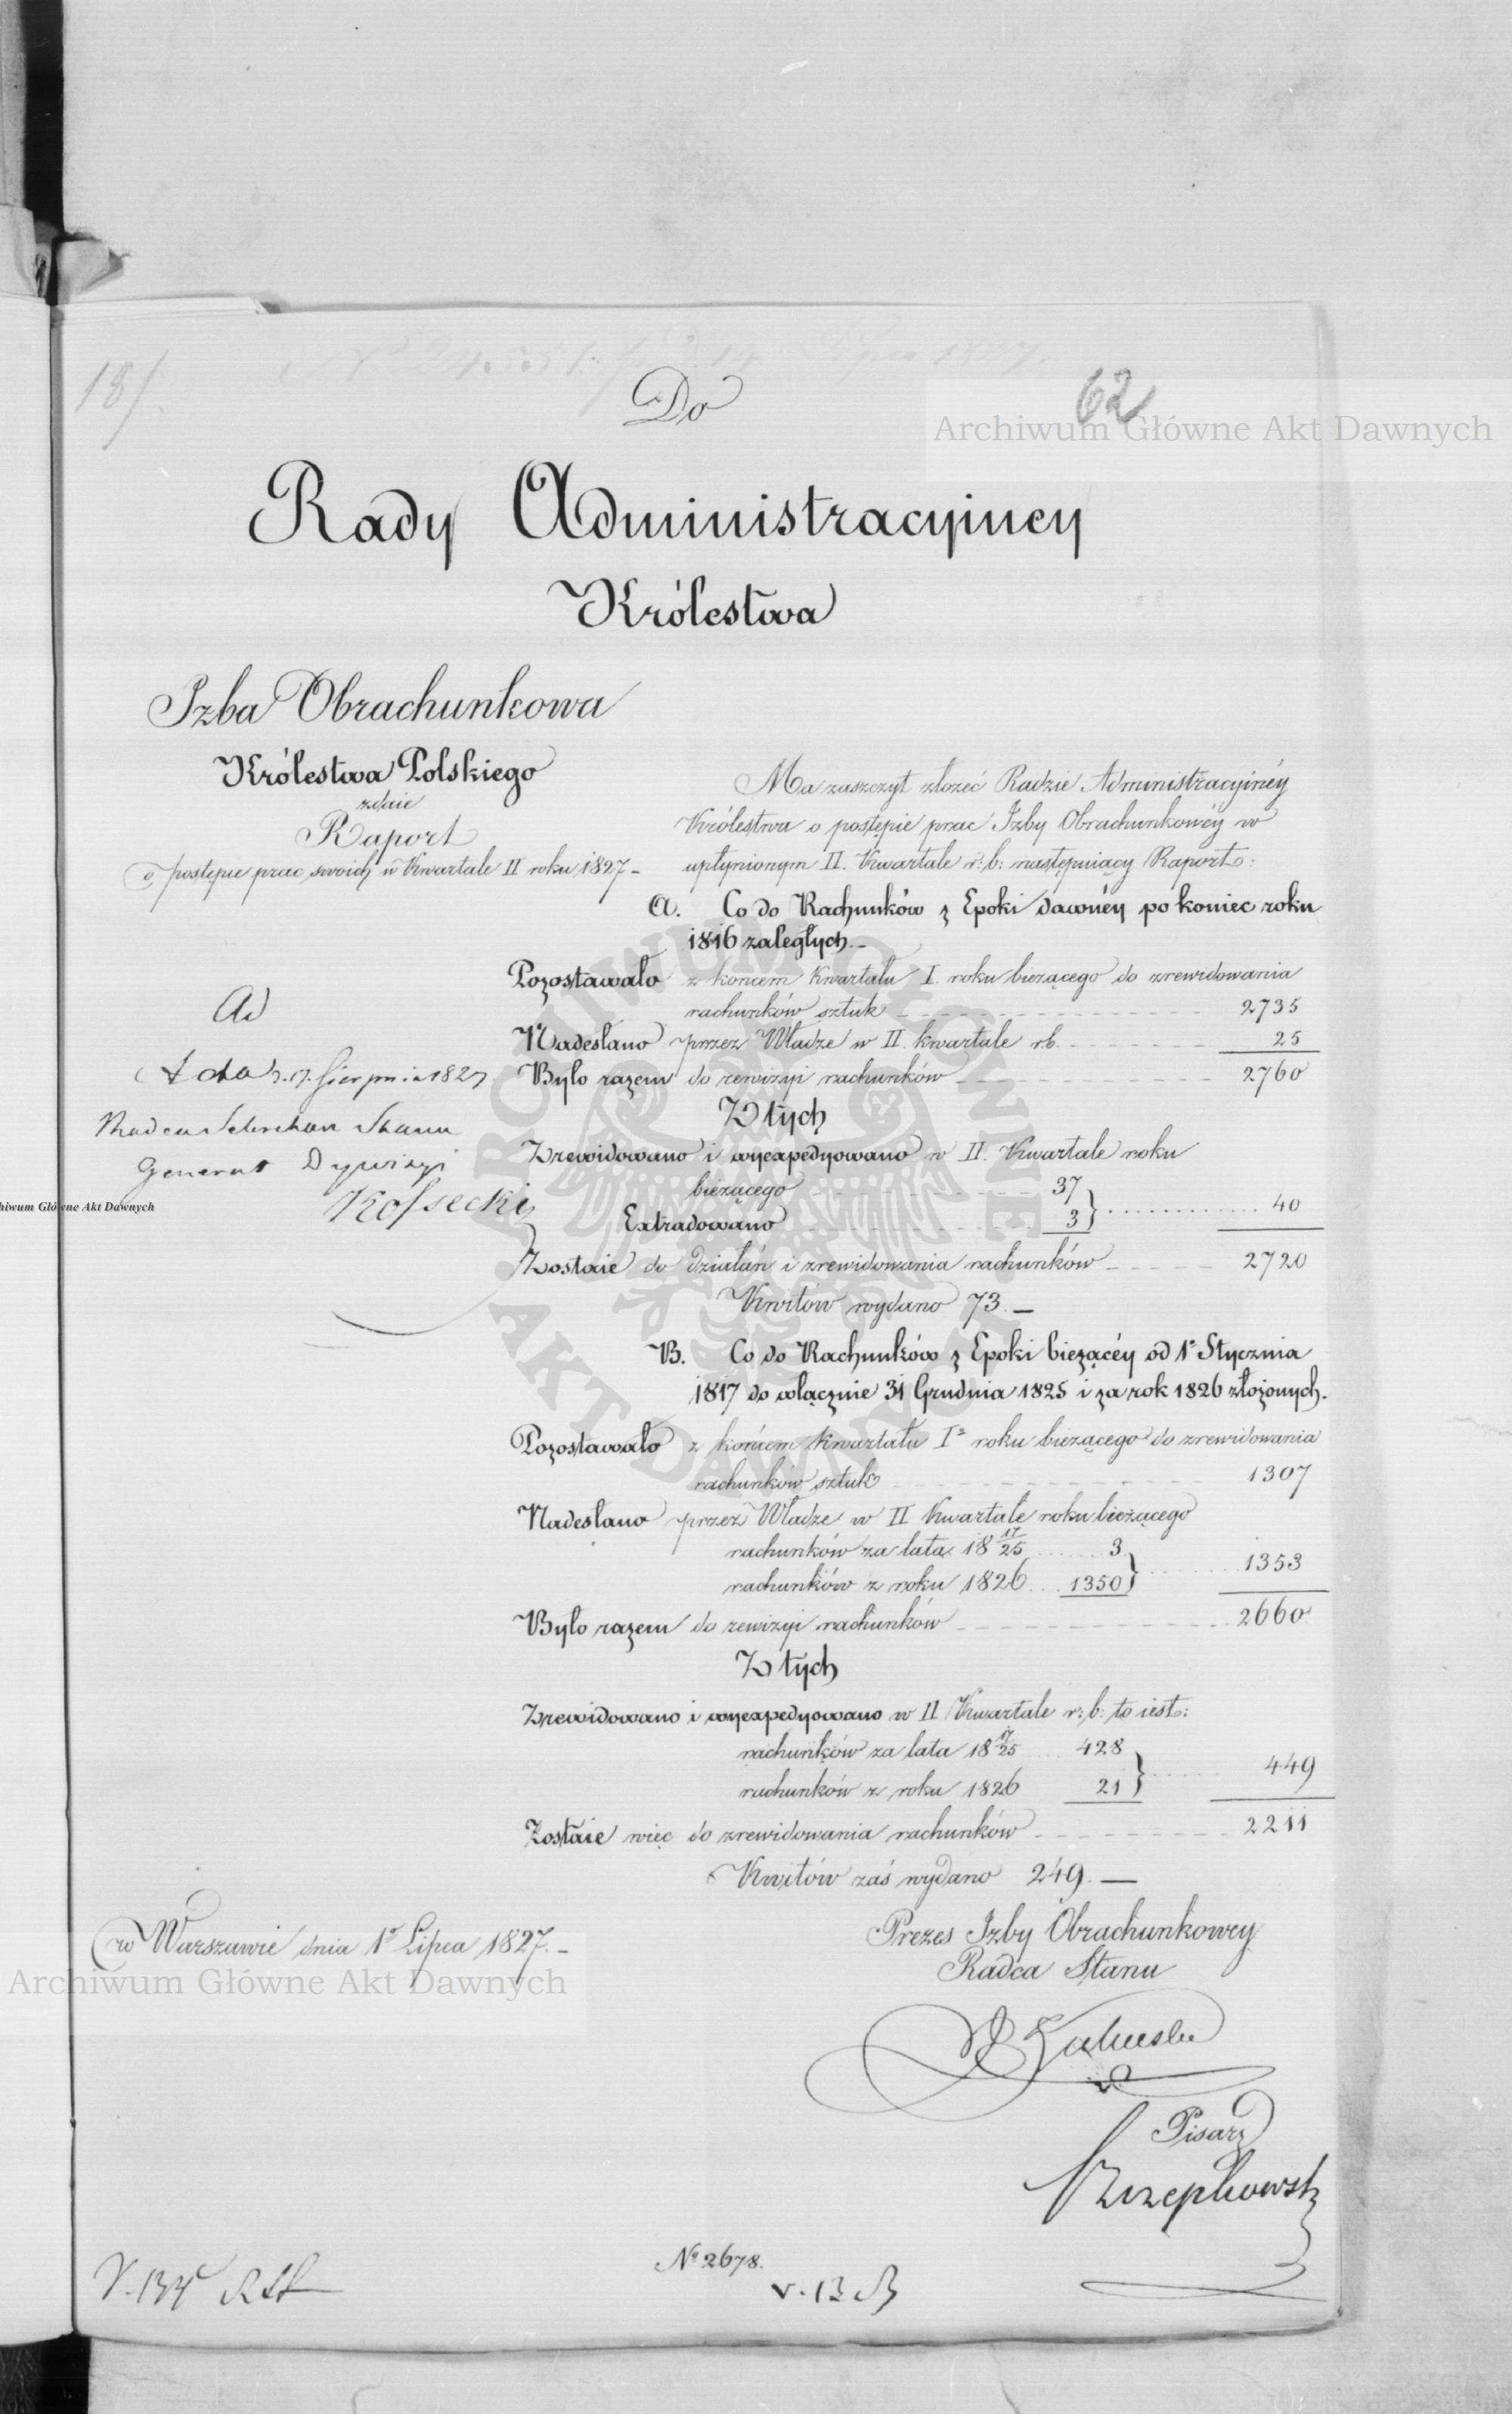 18/.
62
Archiwum Główne Akt Dawnych
Do
Rady Administracyiney
Królestwa
Izba Obrachunkowa
Królestwa Polskiego
zdaie
Raport
o postępie prac swoich w Kwartale II roku 1827 -
Ma zaszczyt złożeć Radzie Administracyinéy
Królestwa o postępie prac Izby Obrachunkowéy w
upłynionym II. Kwartale r: b: następuiący Raport:
A. Co do Rachunków z Epoki dawnéy po koniec roku
1816 zaległych. -
Pozostawało z końcem Kwartału I. roku bieżącego do zrewidowania
rachunków sztuk 2735
Nadesłano przez Władze w II. kwartale r.b. 25
Było razem do rewizyi rachunków 2760
Z tych
Zrewidowano i wyexpedyowano w II. Kwartale roku
bieżącego 37
Extradowano 3 } 40
Zostaie do działań i zrewidowania rachunków 2720
Kwitów wydano 73. —
B. Co do Rachunków z Epoki bieżącéy od 1º Stycznia
1817 do włącznie 31 Grudnia 1825 i za rok 1826 złożonych.
Pozostawało z końcem kwartału Iº roku bieżącego do zrewidowania
rachunków sztuk 1307
Nadesłano przez Władze w II Kwartale roku bieżącego
rachunków za lata 18 17/25 3
rachunków z roku 1826 1350 } 1353
Było razem do rewizyi rachunków 2660
Z tych
Zrewidowano i wyexpedyowano w II Kwartale r: b: to iest:
rachunków za lata 18 17/25 428
rachunków z roku 1826 21 } 449
Zostaie więc do zrewidowania rachunków 2211
Kwitów zaś wydano 249. —
Ad
Acta d. 17. Sierpnia 1827
Radca Sekretarz Stanu
Generał Dywizyi
Kossecki
Archiwum Główne Akt Dawnych
w Warszawie dnia 1º Lipca 1827. -
Archiwum Główne Akt Dawnych
Prezes Izby Obrachunkowey
Radca Stanu
Pisarz
Nº 2678.
ARCHIWUM GŁÓWNE
AKT DAWNYCH